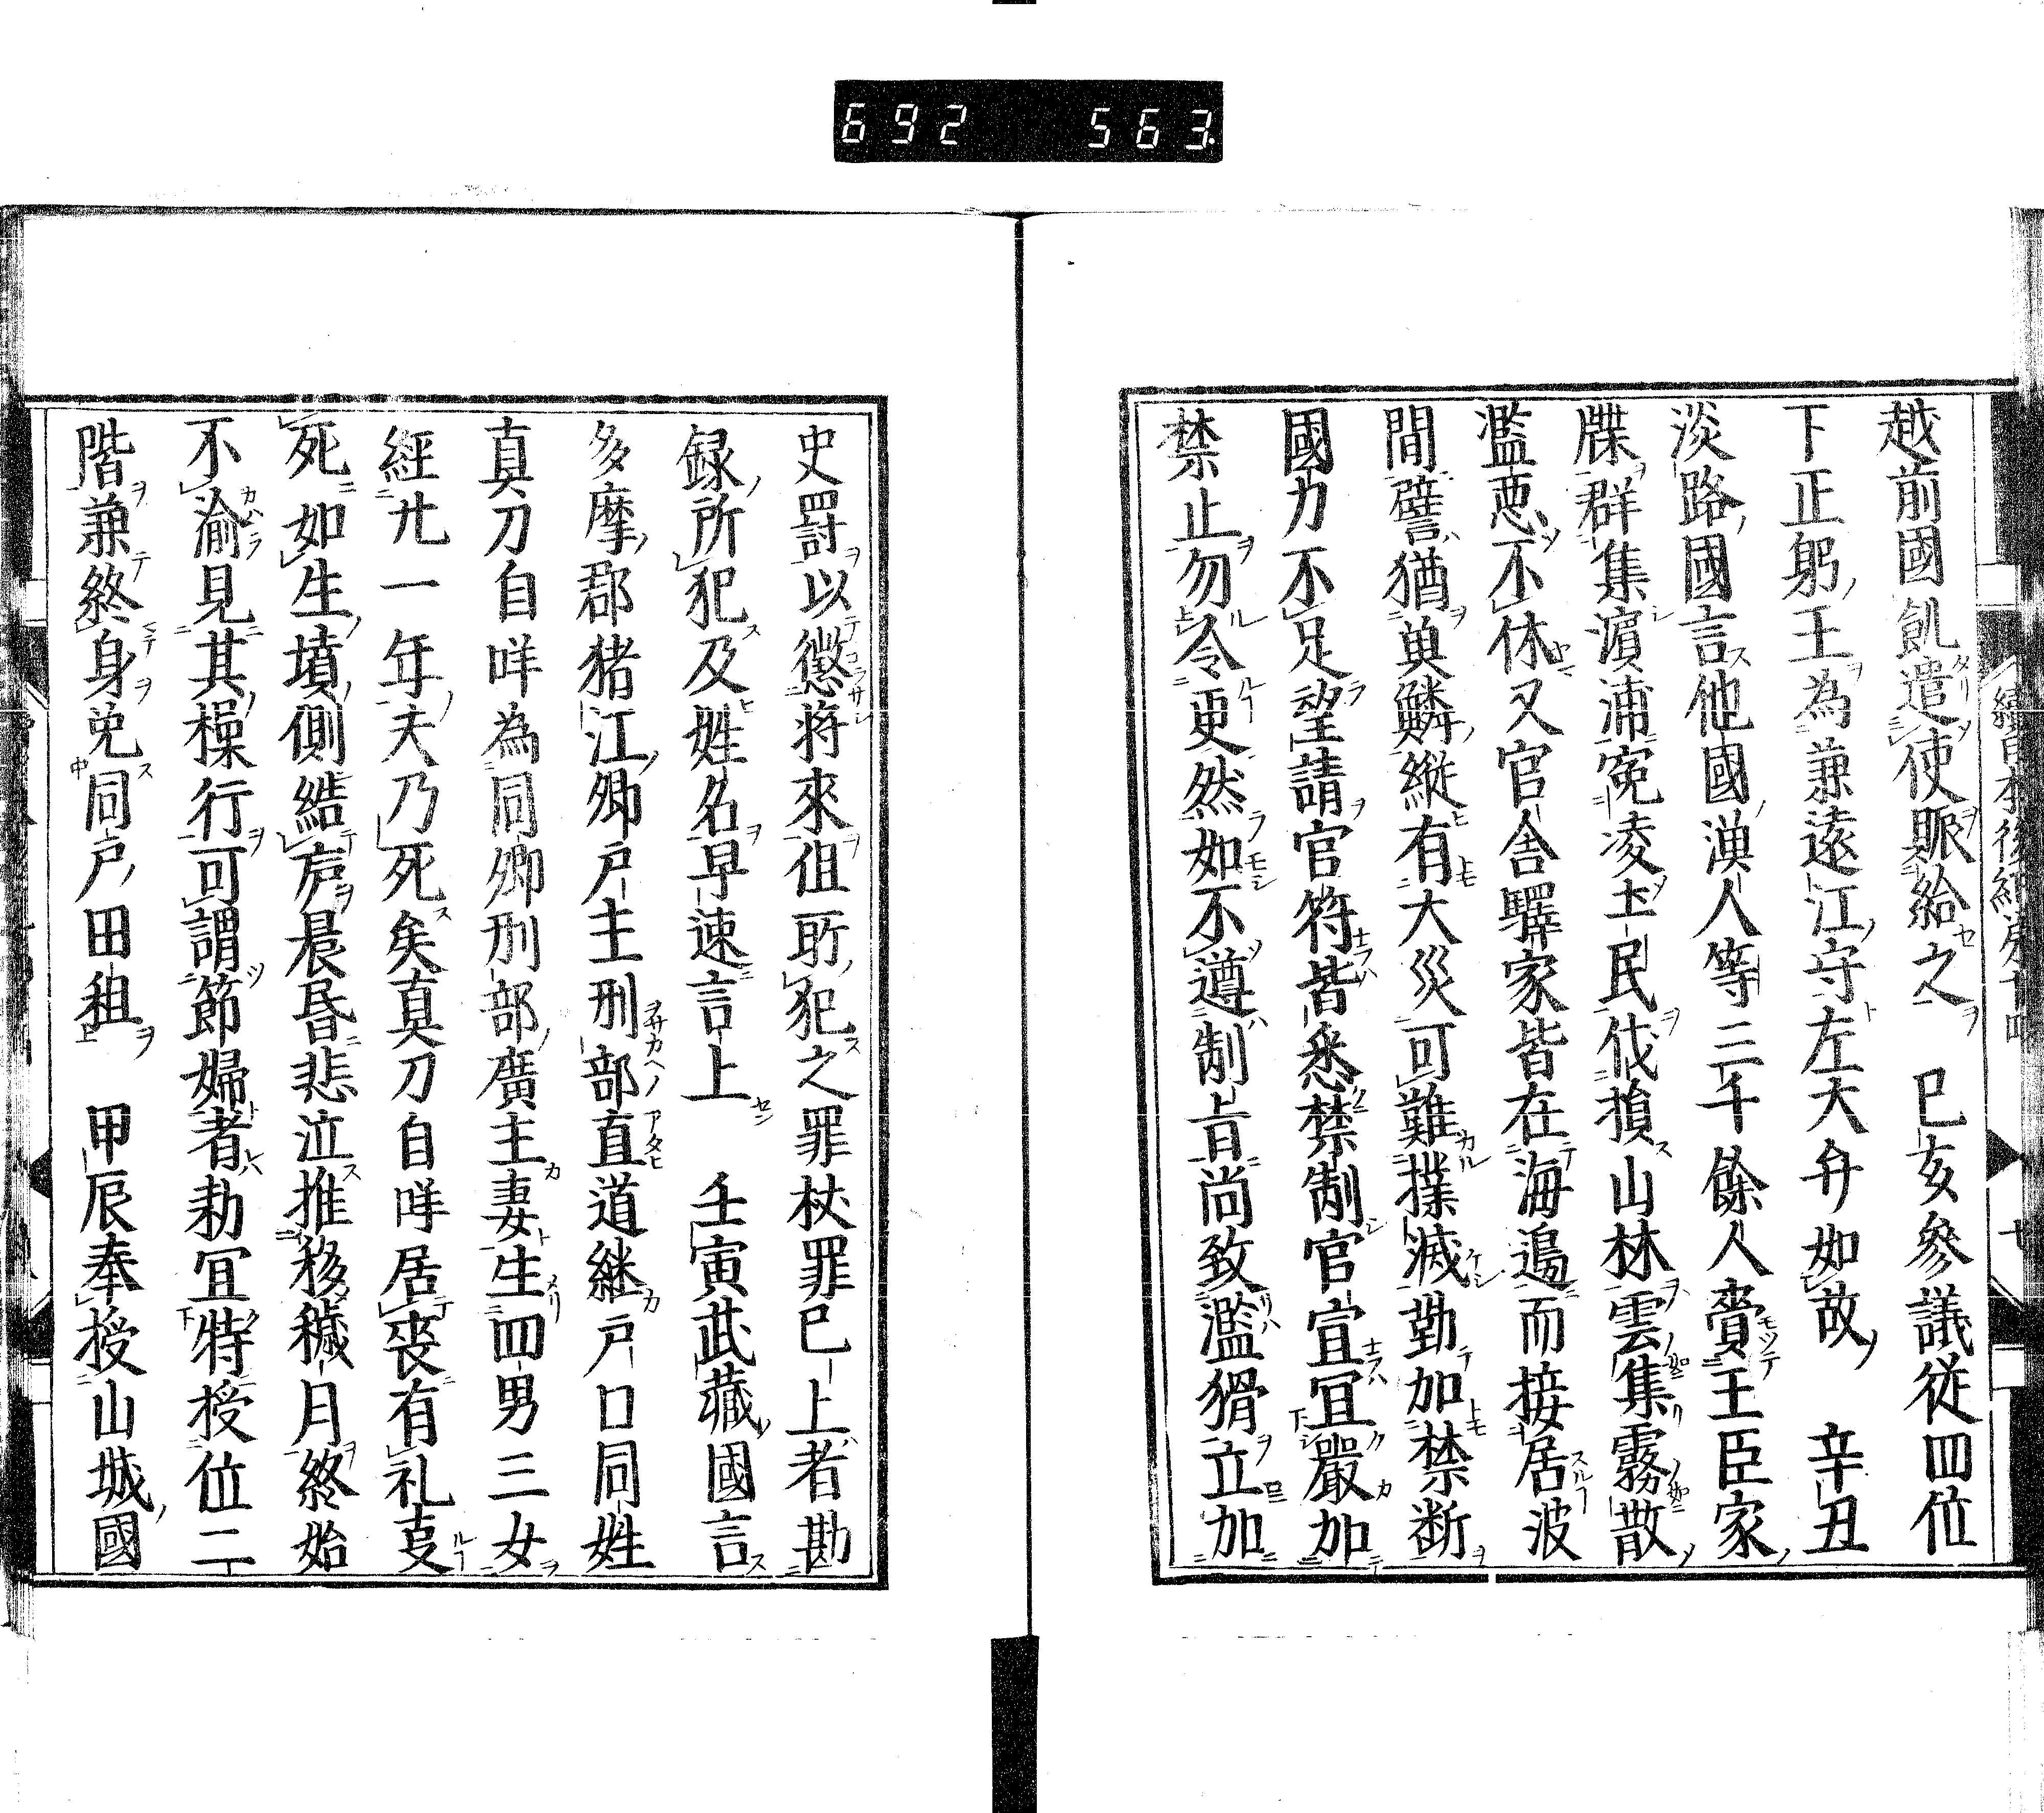 692 563
越前國飢遣使賑給之　巳亥參議從四位
下正躬王為兼遠江守左大弁如故　辛丑
淡路國言他國漁人等三千餘人賷王臣家
牒群集濵浦寃凌土民伐損山林雲集霧散
濫惡不休又官舎驛家皆在海邊而接居波
間譬猶奥鱗縦有大災可難撲滅勤加禁断
國力不足望請官符皆悉禁制官宣冝嚴加
禁止勿令更然如不遵制旨尚致濫猾立加
史罸以懲將來但所犯之罪杖罪巳上者勘
録所犯及姓名早速言上　壬寅武藏國言
多摩郡猪江郷戸主刑部直道継戸口同姓
真刀自咩為同郷刑部廣主妻生四男三女
經廿一年夫乃死矣真刀自咩居喪有礼亊
死如生墳側結廬晨昏悲泣推移穢月終始
不渝見其操行可謂節婦者勅冝特授位二
階兼終身免同戸田租　甲辰奉授山城國